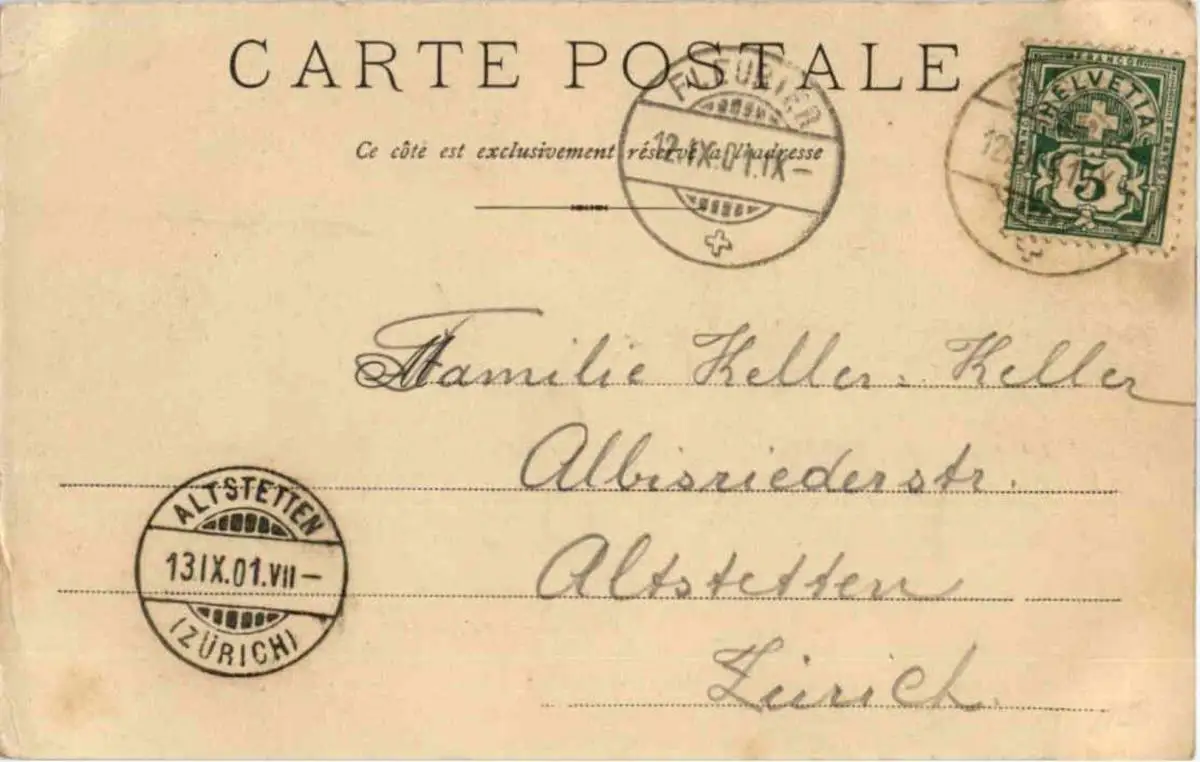 CARTE POSTALE
Ce côté est exclusivement réservé à l'adresse
FLEURIER
12.IX.01.IX-
FRANCO
HELVETIA
5
12.
Familie Keller-Keller
Albisriederstr.
Altstetten
Zürich.
ALTSTETTEN
13.IX.01.VII-
(ZÜRICH)